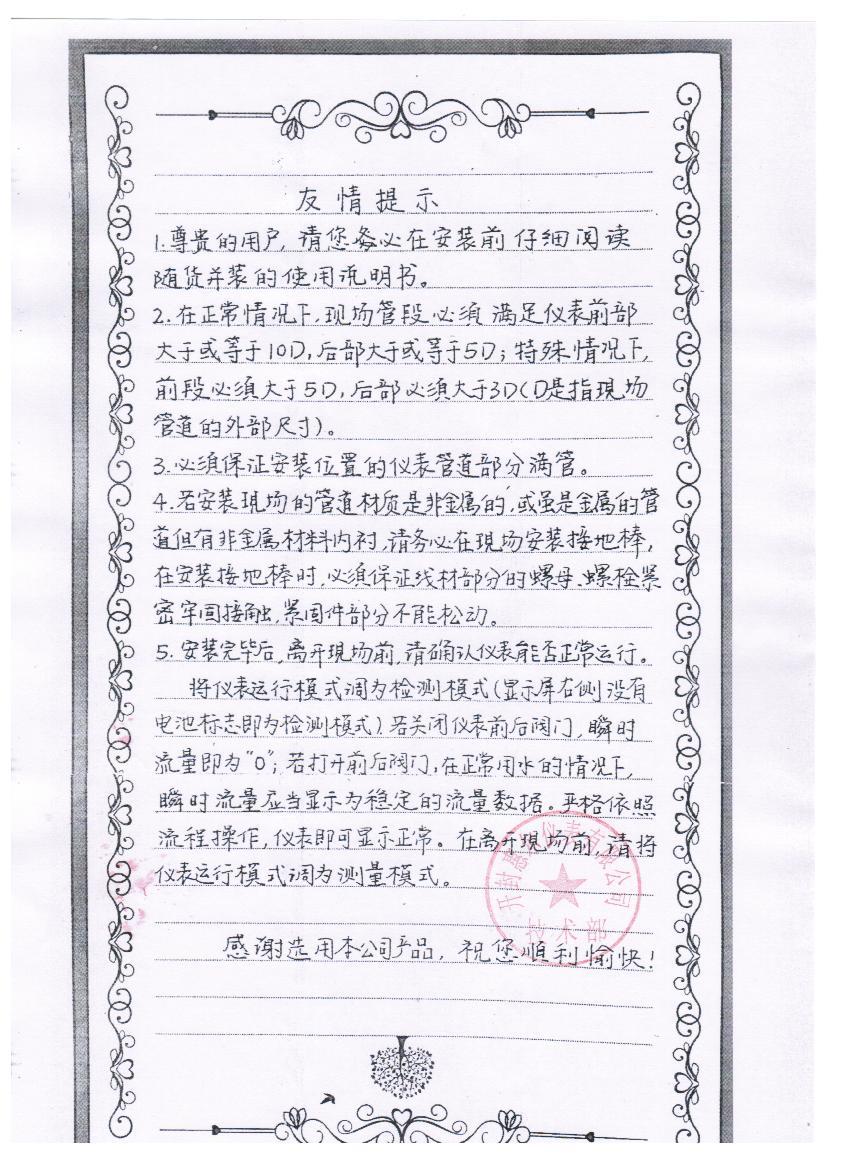 友情提示
1.尊贵的用户,请您务必在安装前仔细阅读
随货并装的使用说明书。
2.在正常情况下,现场管段必须满足仪表前部
大于或等于10D,后部大于或等于5D;特殊情况下,
前段必须大于5D,后部必须大于3D(D是指现场
管道的外部尺寸)。
3.必须保证安装位置的仪表管道部分满管。
4.若安装现场的管道材质是非金属的,或虽是金属的管
道但有非金属材料内衬,请务必在现场安装接地棒,
在安装接地棒时,必须保证线材部分的螺母、螺栓紧
密牢固接触,紧固件部分不能松动。
5.安装完毕后,离开现场前,请确认仪表能否正常运行。
将仪表运行模式调为检测模式(显示屏右侧没有
电池标志即为检测模式)若关闭仪表前后阀门,瞬时
流量即为“0”;若打开前后阀门,在正常用水的情况下,
瞬时流量应当显示为稳定的流量数据。严格依照
流程操作,仪表即可显示正常。在离开现场前,请将
仪表运行模式调为测量模式。
开封 仪表有 公司
技术部
感谢选用本公司产品,祝您顺利愉快!